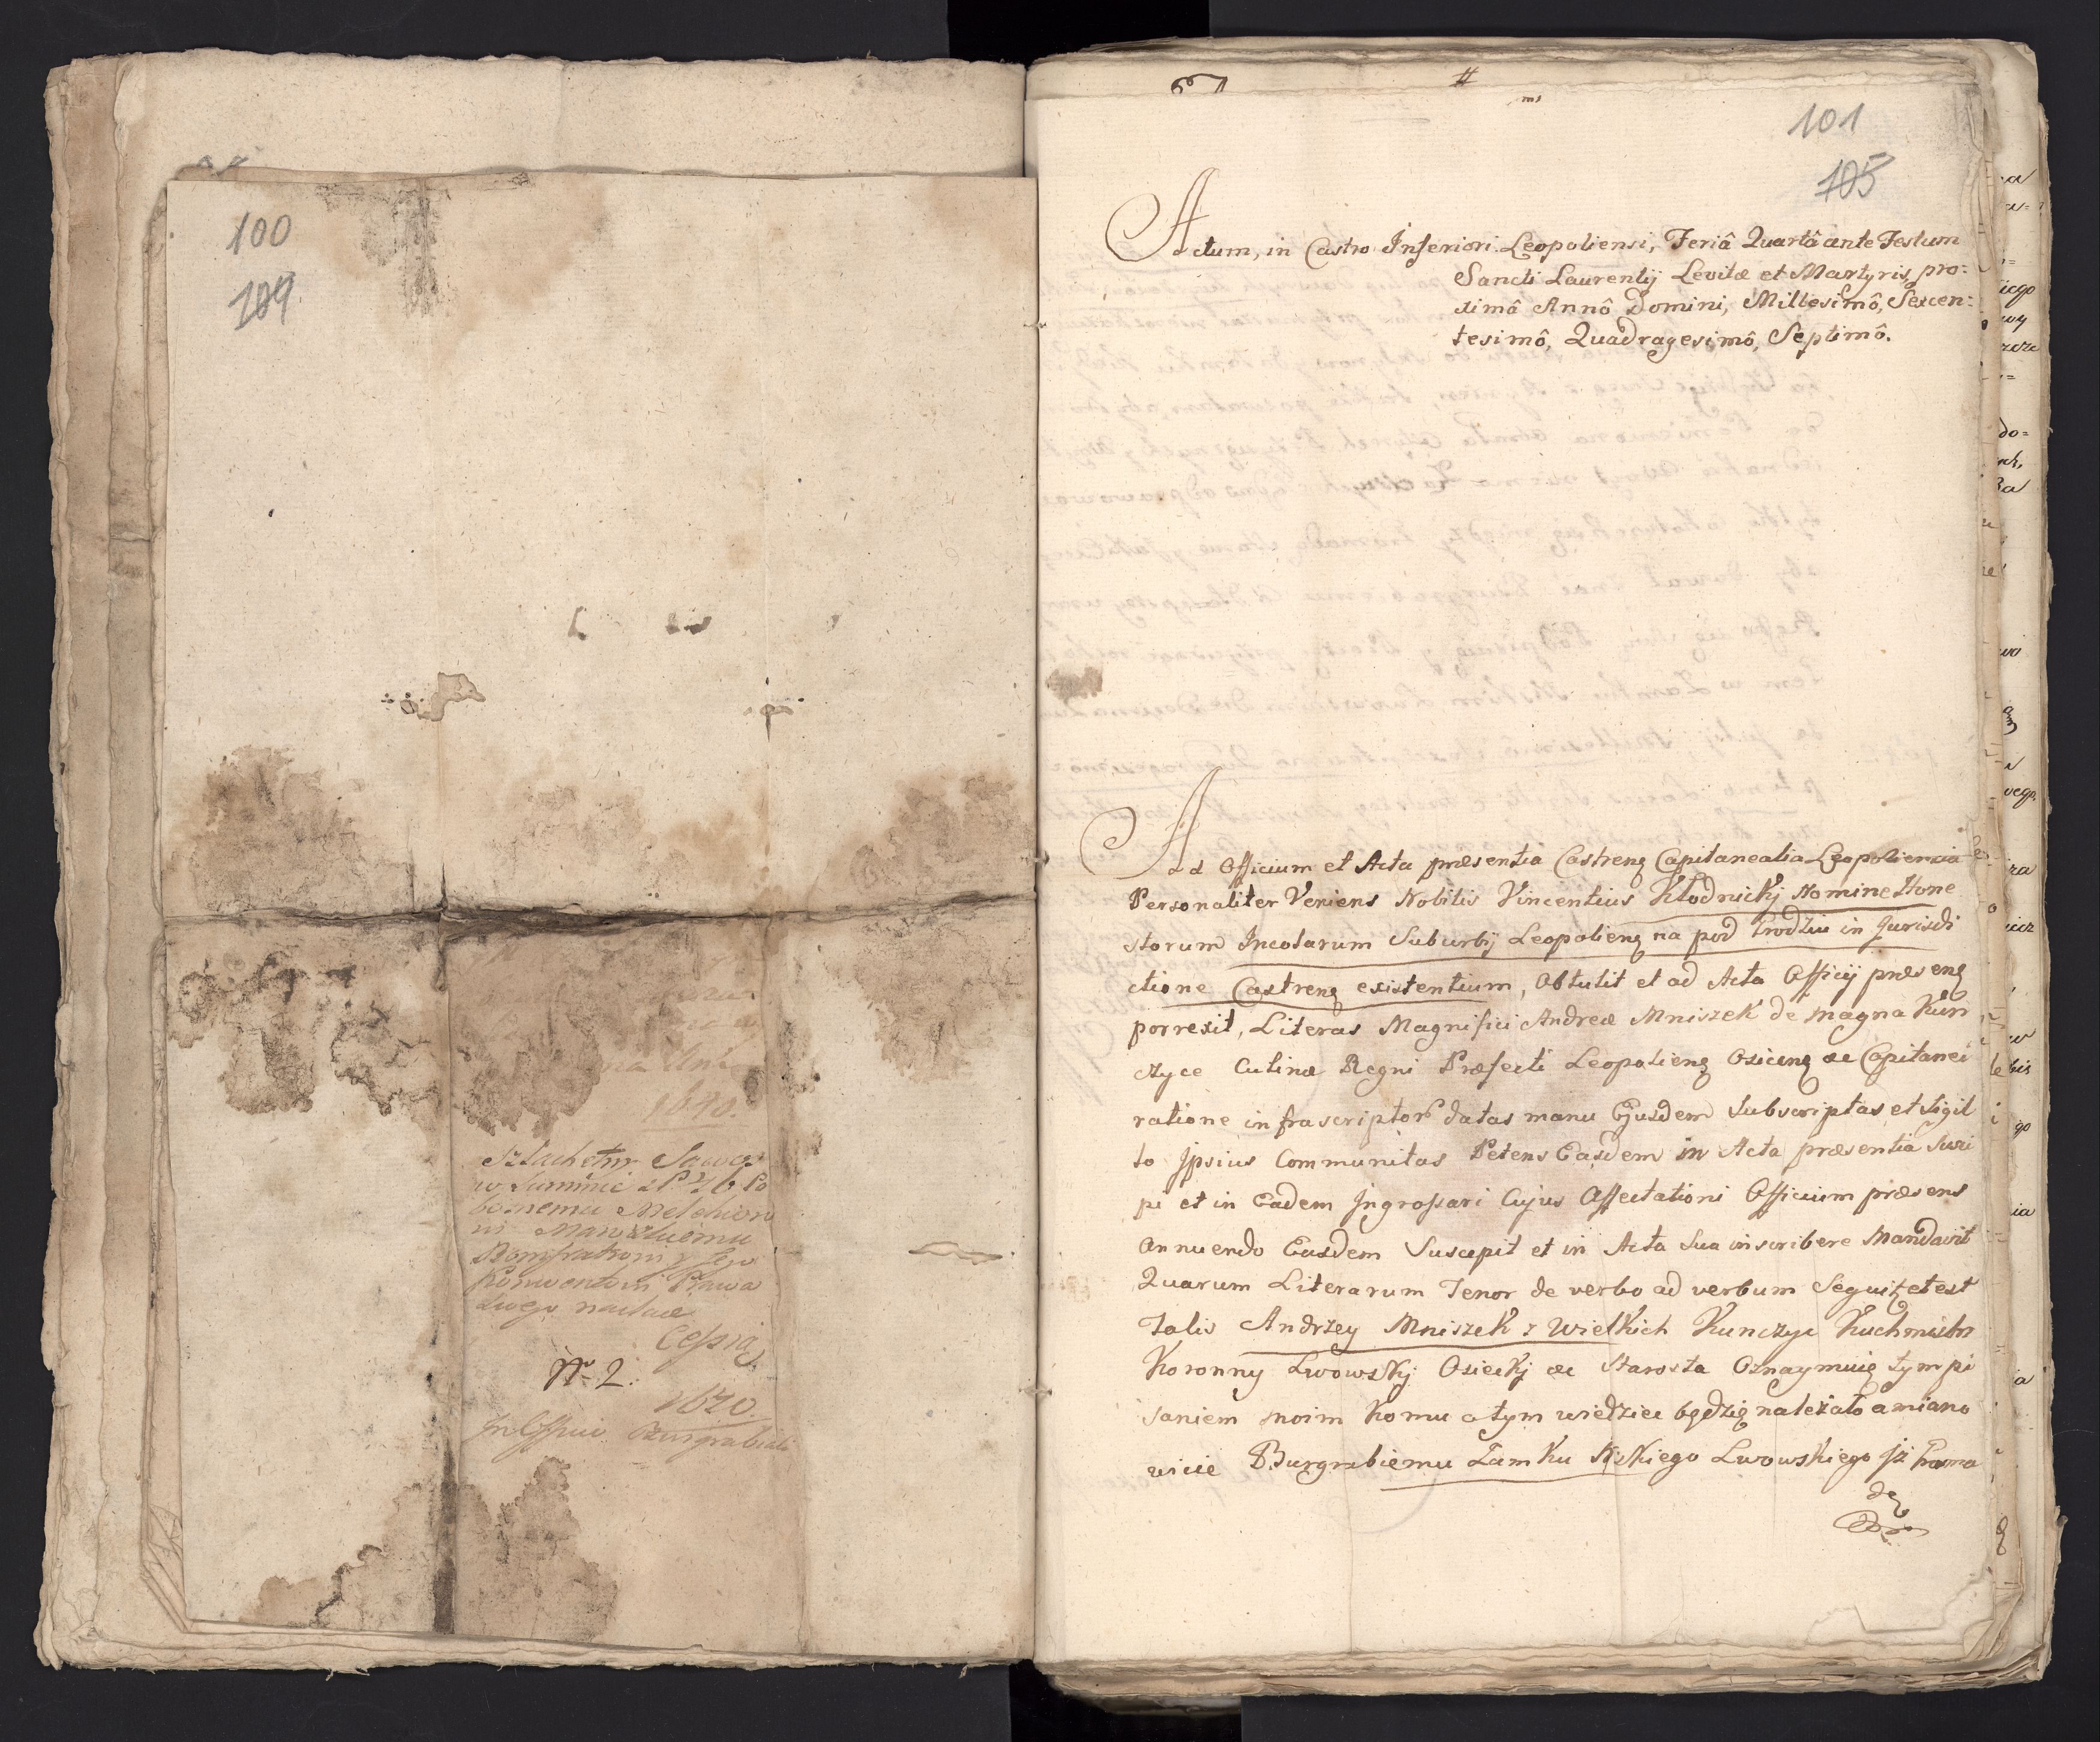 100
109
na
1640
Szlachetny
w Summie
bożnemu Melchioro
wi
Bonifratrom y Jego
Konwentowi Prawa
swego
Cessia
N. 2.
1640
In Officio Burgrabiali
101
105
Actum, in Castro Inferiori Leopoliensi, Feriâ Quartâ ante Festum
Sancti Laurentij Levitæ et Martyris, pro:
ximâ Annô Domini, Millesimô, Sexcen:
tesimô, Quadragesimô, Septimô.
Ad Officium et Acta præsentia Castren Capitanealia Leopoliensia
Personaliter Veniens Nobilis Vincentius Kłodnickj Nomine Hone
storum Incolarum Suburbij Leopolien na pod Grodziu in Jurisdi
ctione Castren existentium, Obtulit et ad Acta Officij præsen
porrexit, Literas Magnifici Andreæ Mniszek de magna Kun
czyce Culinæ Regni Præfecti Leopolien Osicen &c Capitanei
ratione infrascriptor datas manu Ejusdem Subscriptas et Sigil
lo Ipsius Communitas Petens Easdem in Acta præsentia Susci
pi et in Eadem Ingrossari Cujus Affectationi Officium præsens
Annuendo Easdem Suscepit et in Acta Sua inscribere Mandavit
Quarum Literarum Tenor de verbo ad verbum Sequit et est
Talis Andrzey Mniszek z Wielkich Kunczyc Kuchmistrz
Koronny Lwowskj Osieckj &c Starosta Oznaymuię tym pi
saniem moim Komu o tym wiedziec będzie należało a miano
wicie Burgrabiemu Zamku Niskiego Lwowskiego Jż Groma
de